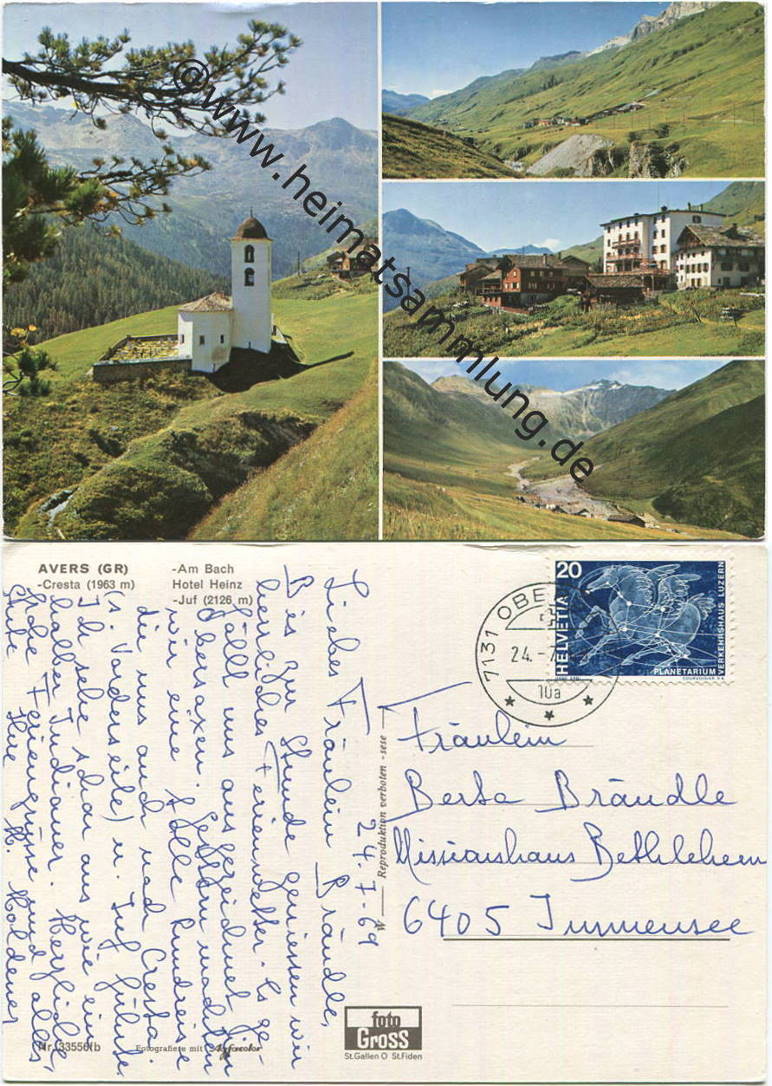 ©www.heimatsammlung.de
AVERS (GR)
-Cresta (1963 m)
-Am Bach
Hotel Heinz
-Juf (2126 m)
24.7.69
Liebes Fräulein Brändle,
Bis zur Stunde geniessen wir
herrliches Ferienwetter. Es ge-
fällt uns ausgezeichnet in
Obersaxen. Gestern machten
wir eine tolle Rundreise
die uns auch nach Cresta
(s. Vorderseite) u. Juf führte.
Ich sehe schon aus wie ein
halber Indianer. Herzliche
frohe Feriengrüsse und alles
Gute Ihre M. Moldener
Nr. 33556/b
Fotografiere mit Agfacolor
Reproduktion verboten - sese
foto
GROSS
St.Gallen O St.Fiden
7131 OBE
24.-7
10a
20
HELVETIA
PLANETARIUM
VERKEHRSHAUS LUZERN
COURVOISIER S.A.
Fräulein
Berta Brändle
Missionshaus Bethlehem
6405 Immensee